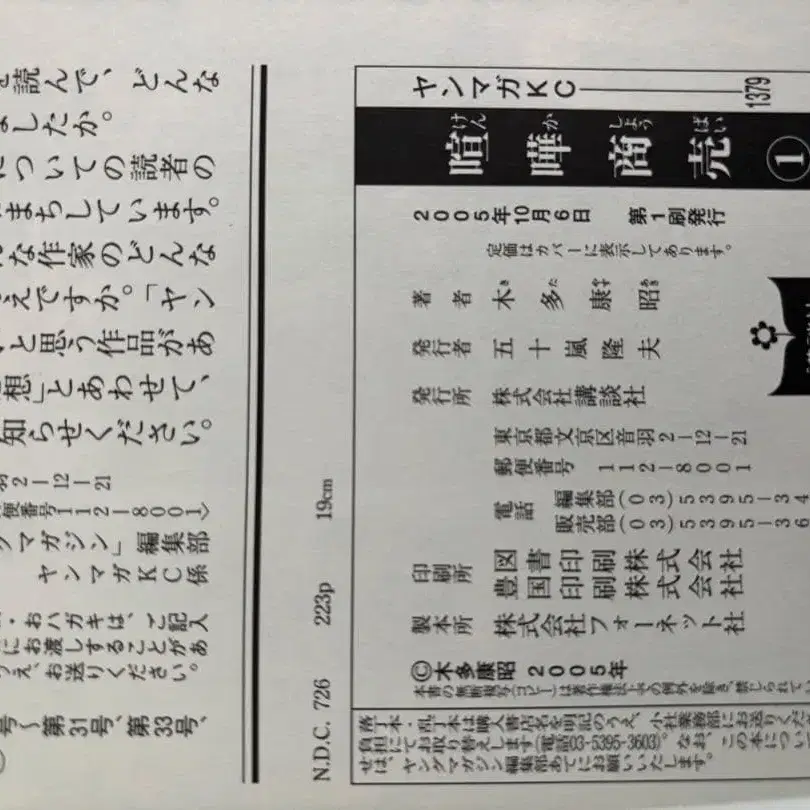 ヤンマガKC 1379
喧嘩商売 ①
けんかしょうばい
2005年10月6日 第1刷発行
定価はカバーに表示してあります。
著者 木多康昭
きたやすあき
発行者 五十嵐隆夫
発行所 株式会社講談社
東京都文京区音羽2-12-21
郵便番号 112-8001
電話 編集部(03)5395-34
販売部(03)5395-36
印刷所 図書印刷株式会社
豊国印刷株式会社
製本所 株式会社フォーネット社
©木多康昭 2005年
本書の無断複写(コピー)は著作権法上の例外を除き、禁じられてい
落丁本・乱丁本は購入書店名を明記のうえ、小社業務部にお送りくだ
負担にてお取り替えします(電話03-5395-3603)。なお、この本につい
せは、ヤングマガジン編集部あてにお願いいたします。
N.D.C. 726 223p 19cm
読んで、どんな
ましたか。
についての読者の
まちしています。
な作家のどんな
えですか。「ヤン
と思う作品があ
想」とあわせて、
知らせください。
羽2-12-21
便番号112-8001〉
グマガジン」編集部
ヤンマガKC係
・おハガキは、ご記入
にお渡しすることがあ
うえ、お送りください。
号〜第31号、第33号、